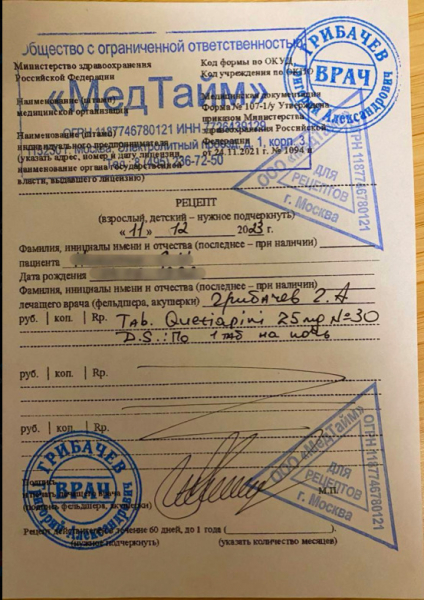 Общество с ограниченной ответственностью
Министерство здравоохранения
Российской Федерации
Код формы по ОКУД
Код учреждения по ОКПО
«МедТайм»
Наименование (штамп)
медицинской организации
Медицинская документация
Форма № 107-1/у Утверждена
приказом Министерства
здравоохранения Российской
Федерации
от 24.11.2021 г. № 1094
ОГРН 1187746780121 ИНН 7726439129
Наименование (штамп)
индивидуального предпринимателя
(указать адрес, номер и дату лицензии,
наименование органа государственной
власти, выдавшего лицензию)
г. Москва, Электролитный проезд, д. 1, корп. 3
Тел. 8 (495) 236-72-50
ГРИБАЧЕВ
ВРАЧ
Александрович
ООО «МедТайм»
ДЛЯ
РЕЦЕПТОВ
г. Москва
ОГРН 1187746780121
РЕЦЕПТ
(взрослый, детский – нужное подчеркнуть)
«11» 12 2023 г.
Фамилия, инициалы имени и отчества (последнее – при наличии)
пациента
Дата рождения
Фамилия, инициалы имени и отчества (последнее – при наличии)
лечащего врача (фельдшера, акушерки) Грибачев Г.А
руб. | коп. | Rp. Tab. Quetiapini 25 mg №30
D.S.: По 1 таб на ночь
руб. | коп. | Rp.
руб. | коп. | Rp.
ГРИБАЧЕВ
ВРАЧ
Григорий Александрович
ООО «МедТайм»
ДЛЯ
РЕЦЕПТОВ
г. Москва
ОГРН 1187746780121
Подпись
и печать лечащего врача
(подпись фельдшера, акушерки)
М.П.
Рецепт действителен в течение 60 дней, до 1 года (
(нужное подчеркнуть)
(указать количество месяцев)